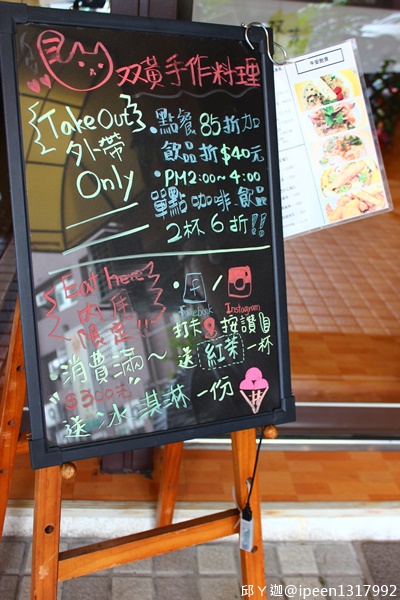 双黃手作料理
Take Out
外帶
Only
•點餐85折加
飲品折$40元
•PM2:00~4:00
單點咖啡飲品
2杯6折!!
Eat here
內用
限定!!
• f / 
Facebook Instagram
打卡 按讚
送 紅茶 一杯
•消費滿~
"$300元"
送冰淇淋一份
邱ㄚ迦@ipeen1317992